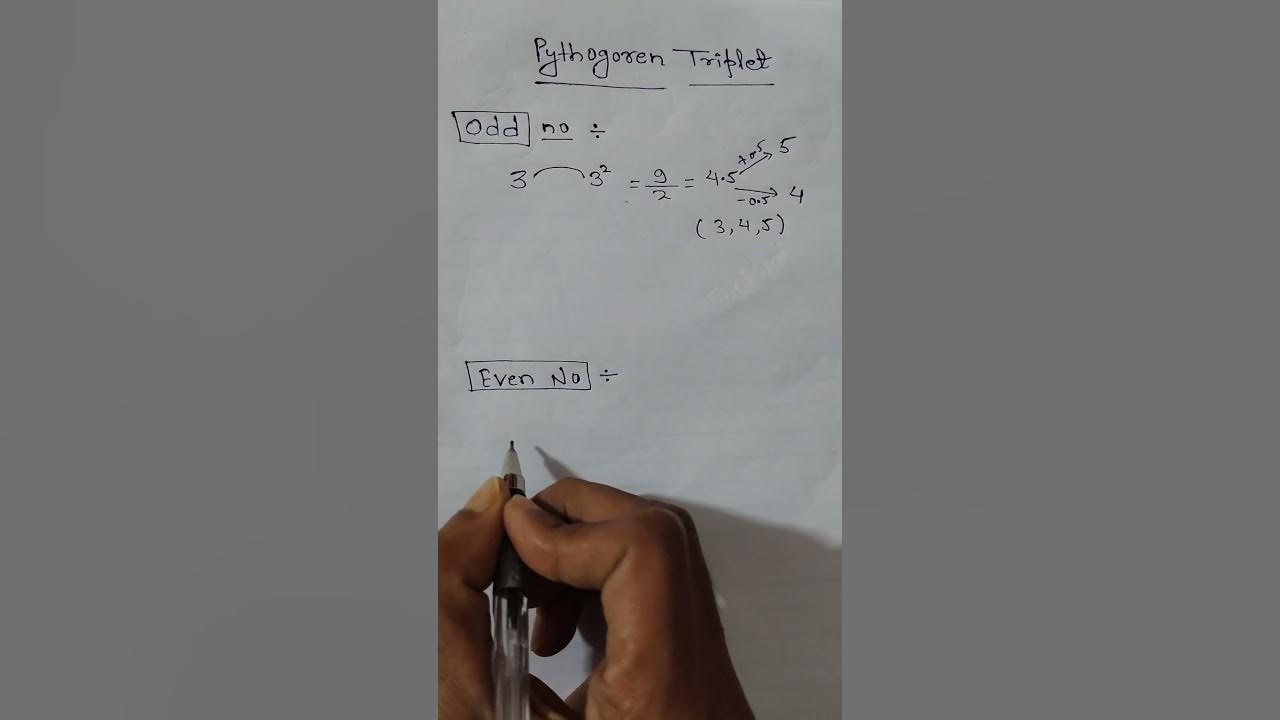 Pythogoren Triplet
Odd no ÷
3 3² = 9/2 = 4.5 +0.5 5
-0.5 4
(3, 4, 5)
Even No ÷